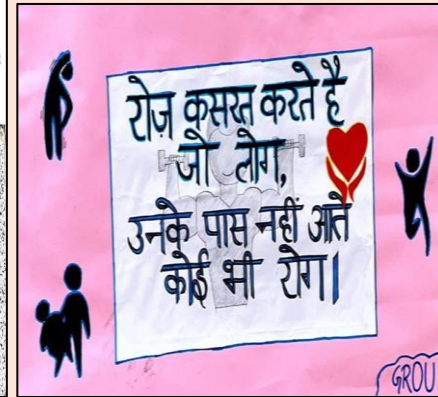 रोज़ कसरत करते है
जो लोग,
उनके पास नहीं आते
कोई भी रोग।
GROU